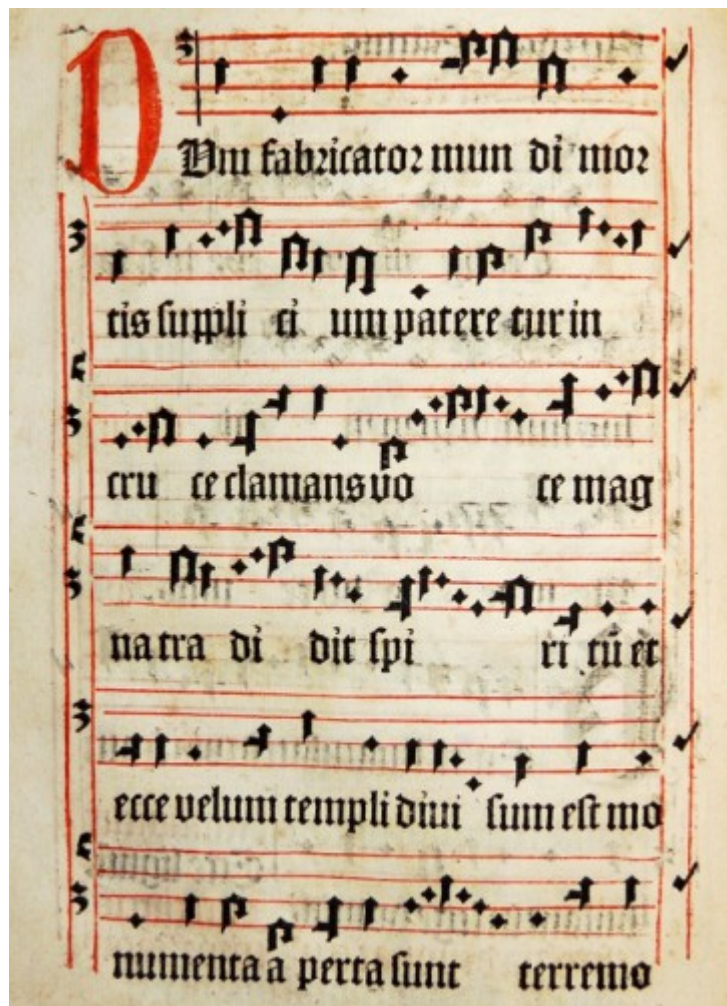 DUm fabricator mun di mor
tis suppli ci um patere tur in
cru ce clamans vo ce mag
na tra di dit spi ri tū et
ecce velum templi divi sum est mo
numenta a perta sunt terremo